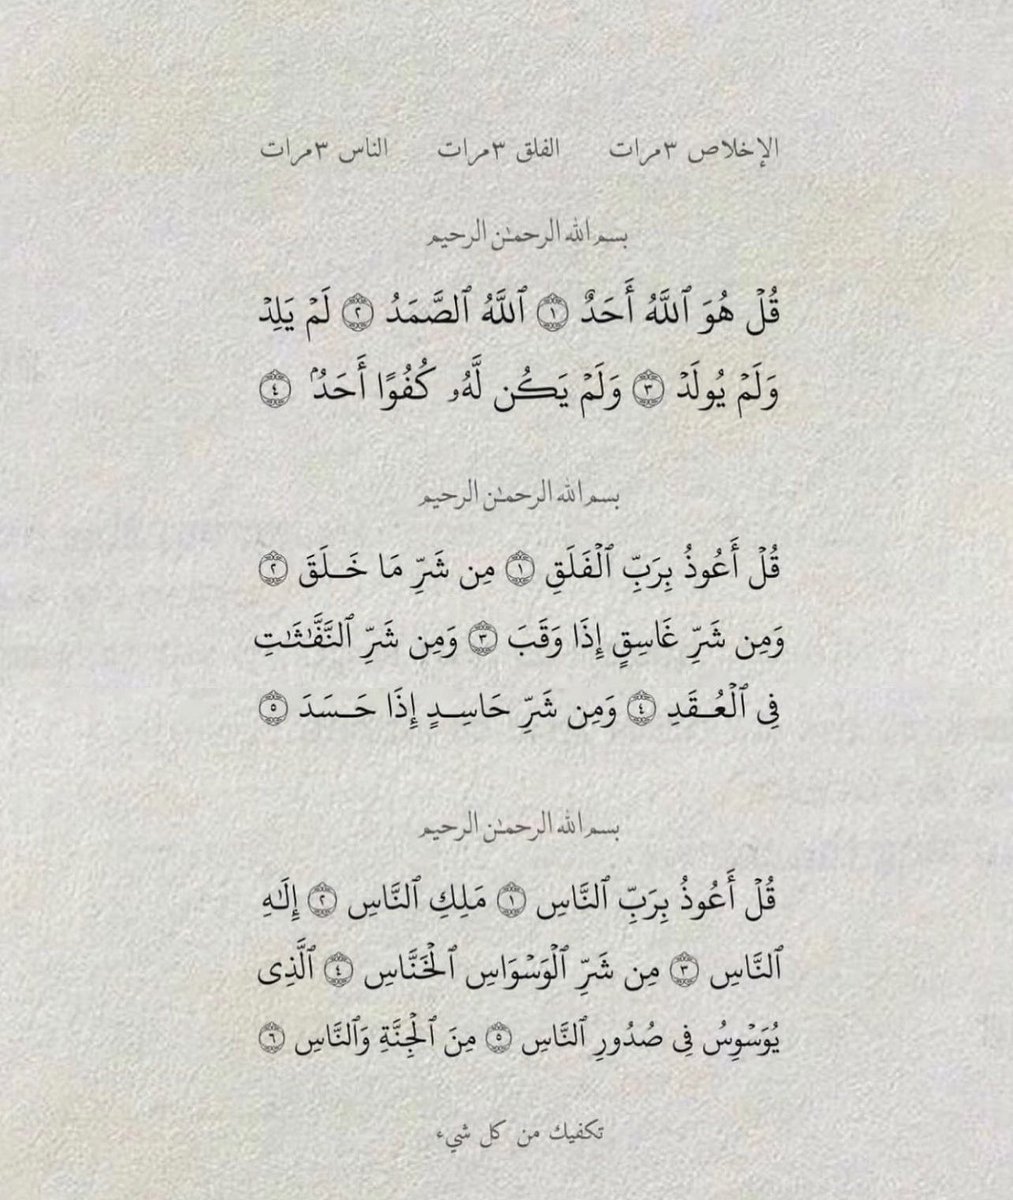 الإخلاص ٣مرات الفلق ٣مرات الناس ٣مرات
بسم الله الرحمـٰن الرحيم
قُلۡ هُوَ ٱللَّهُ أَحَدٌ ١ ٱللَّهُ ٱلصَّمَدُ ٢ لَمۡ يَلِدۡ
وَلَمۡ يُولَدۡ ٣ وَلَمۡ يَكُن لَّهُۥ كُفُوًا أَحَدُۢ ٤
بسم الله الرحمـٰن الرحيم
قُلۡ أَعُوذُ بِرَبِّ ٱلۡفَلَقِ ١ مِن شَرِّ مَا خَـلَقَ ٢
وَمِن شَرِّ غَاسِقٍ إِذَا وَقَبَ ٣ وَمِن شَرِّ ٱلنَّفَّٰثَٰتِ
فِى ٱلۡعُـقَدِ ٤ وَمِن شَرِّ حَاسِـدٍ إِذَا حَـسَدَ ٥
بسم الله الرحمـٰن الرحيم
قُلۡ أَعُوذُ بِرَبِّ ٱلنَّاسِ ١ مَلِكِ ٱلنَّاسِ ٢ إِلَٰهِ
ٱلنَّاسِ ٣ مِن شَرِّ ٱلۡوَسۡوَاسِ ٱلۡخَنَّاسِ ٤ ٱلَّذِى
يُوَسۡوِسُ فِى صُدُورِ ٱلنَّاسِ ٥ مِنَ ٱلۡجِنَّةِ وَٱلنَّاسِ ٦
تكفيك من كل شيء